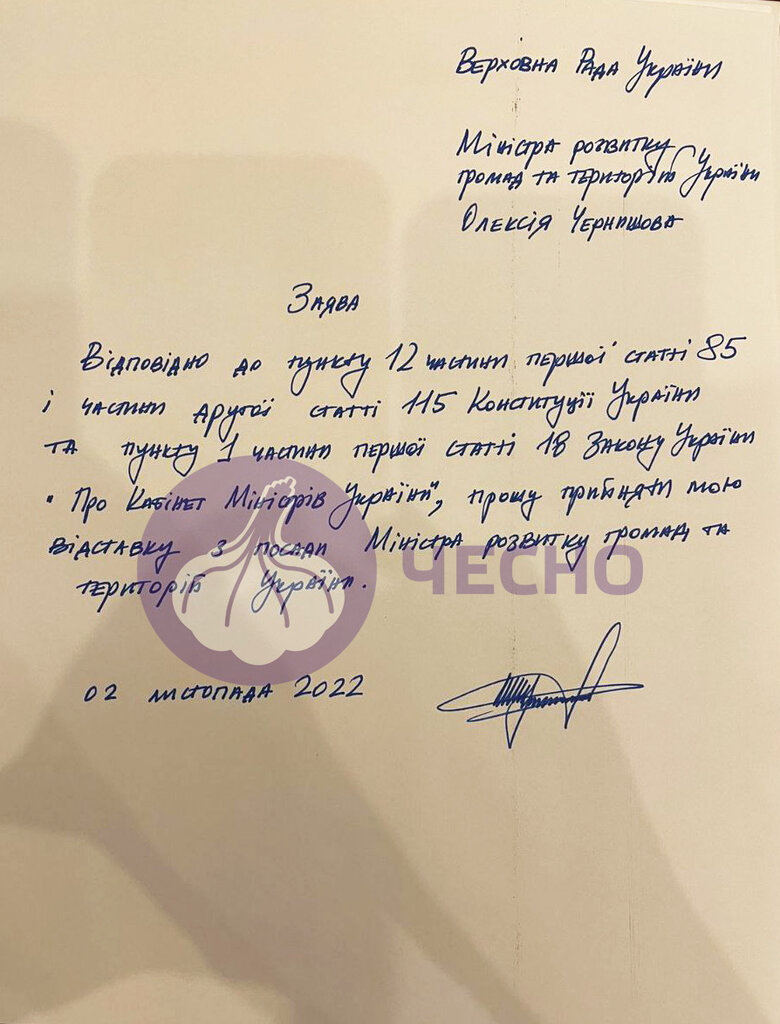 Верховна Рада України
Міністра розвитку
громад та територій України
Олексія Чернишова
Заява
Відповідно до пункту 12 частини першої статті 85
і частини другої статті 115 Конституції України
та пункту 1 частини першої статті 18 Закону України
"Про Кабінет Міністрів України", прошу прийняти мою
відставку з посади Міністра розвитку громад та
територій України.
ЧЕСНО
02 листопада 2022